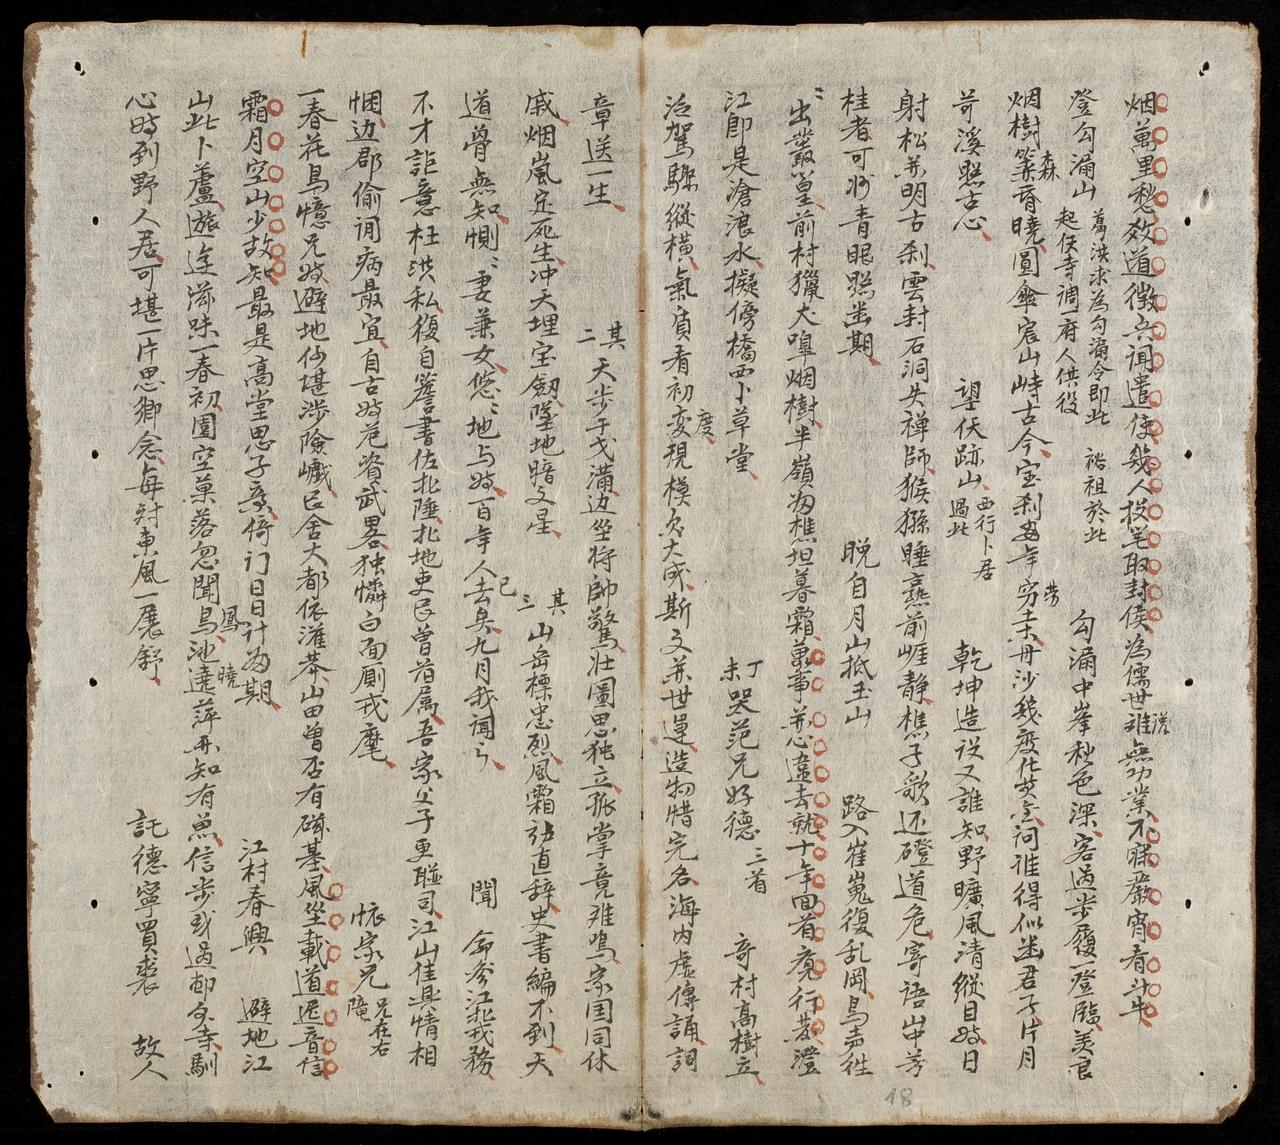 烟萬里愁殺道徵兵聞遣使幾人投笔取封侯為儒世誰無功業不寐嚴宵看斗牛
登勾漏山 葛洪求為勾漏令即此 裕祖於此 起伕寺調府人供役 勾漏中峯秋色深客過步履一登臨美良
烟樹籠昏曉圓傘宸山峙古今宝刹年穷未丹沙幾度化芙金问谁得似幽君子片月
苛溪照古心 望伏跡山 西行卜居過此 乾坤造设又誰知野曠風清縱目时日
射松并明古刹雲封石洞失禅師猴猻睡熹前崕静樵子歌还磴道危寄语山中芳
桂者可将青眼照幽期 晚自月山抵玉山 路入崔嵬復乱岡鳥声徃
〻出叢篁前村獵犬嘷烟樹半嶺樵坦暮霜萬事并心違去就十年回首竟行荒澄
江即是滄浪水擬傍橋西小草堂 丁未哭范兄好德 三首 奇村高樹立
泛駕騄縱橫氣質看初度変現模欠大成斯文并世運造物惜完名海内虛傳誦詞
章送一生 其二 天步干戈满边坐将帥驚壮圖思独立孤掌竟难鳴家囯同休
戚烟嵐定死生冲天埋宝劒墜地暗文星 其三 山岳標忠烈風霜弘直辞史書編不到天
道骨無知恻〻妻兼女悠〻地与时百年人已去矣九月我闻之 聞 命參江北戎務
不才詎意枉洪私復自簷書佐北陲北地吏民曾旧属吾家父子更聮司江山佳興情相
悃边郡偷闻病最宜自古时危資武畧独憐白面厠戎麾
一春花鳥憶兄时避地何堪涉險巇民舍大都依灌莽山田曾否有磁基風坐載道遅音信 悵家兄 兄在右隴
霜月空山少故知最是高堂思子烝倚门日日计為期 江村春興 避地江
山此卜蘆遊迬滋味一春初園空菓落忽聞鳥鳳池遶曉萍开知有魚信步或過却外寺馴
心时到野人居可堪一片思鄉念每对東風一展舒 託德寧買裘 故人